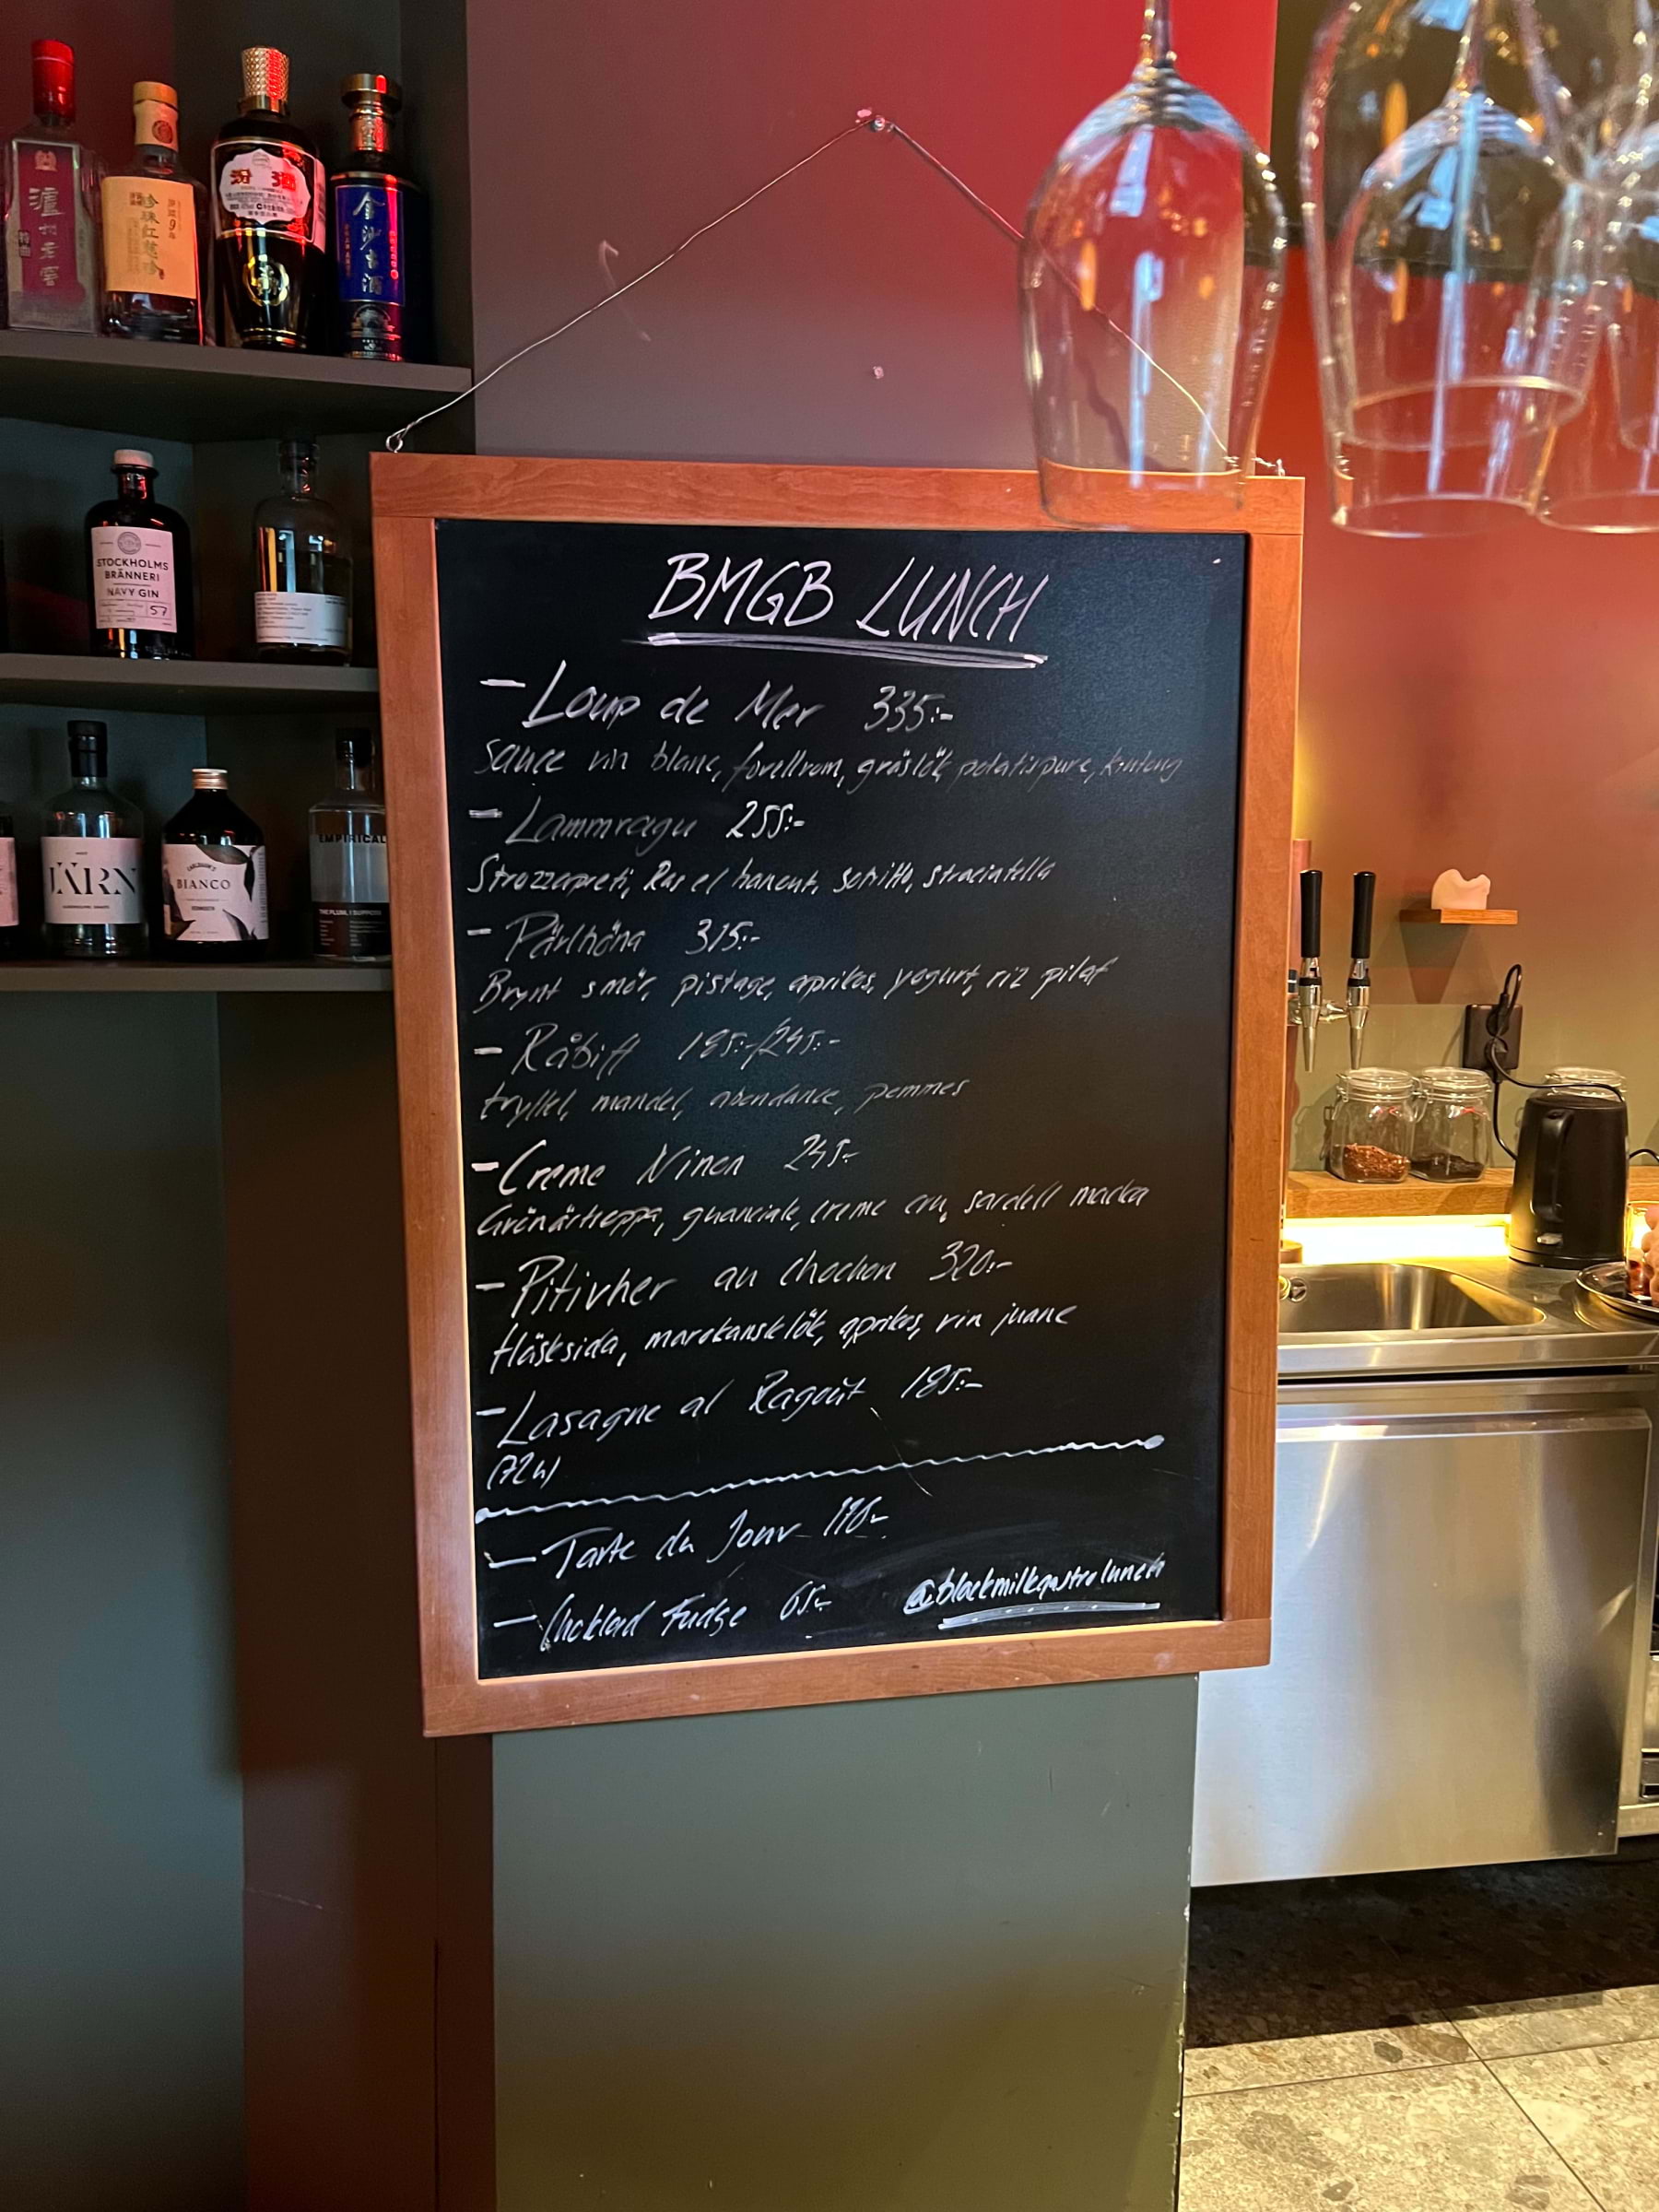 泸州老窖
珍珠红慈珍
汾酒
金沙古酒
STOCKHOLMS
BRÄNNERI
NAVY GIN
57
JÄRN
BIANCO
EMPIRICAL
THE PLUM, I SUPPOSE
BMGB LUNCH
- Loup de Mer 335:-
Sauce vin blanc, forellrom, gräslök, potatispure, krutong
- Lammragu 255:-
Strozzapreti, Ras el hanout, sofritto, straciatella
- Pärlhöna 315:-
Brynt smör, pistage, aprikos, yogurt, riz pilaf
- Råbiff 185:-/245:-
tryffel, mandel, abondance, pommes
- Creme Ninon 245:-
Grönärtsoppa, guanciale, creme cru, sardell macka
- Pitivher au chochon 320:-
Fläsksida, marokansk lök, aprikos, vin juane
- Lasagne al Ragoût 185:-
(72h)
- Tarte du Jour 110:-
- Choklad Fudge 65:-
@blackmilkgastrolunch